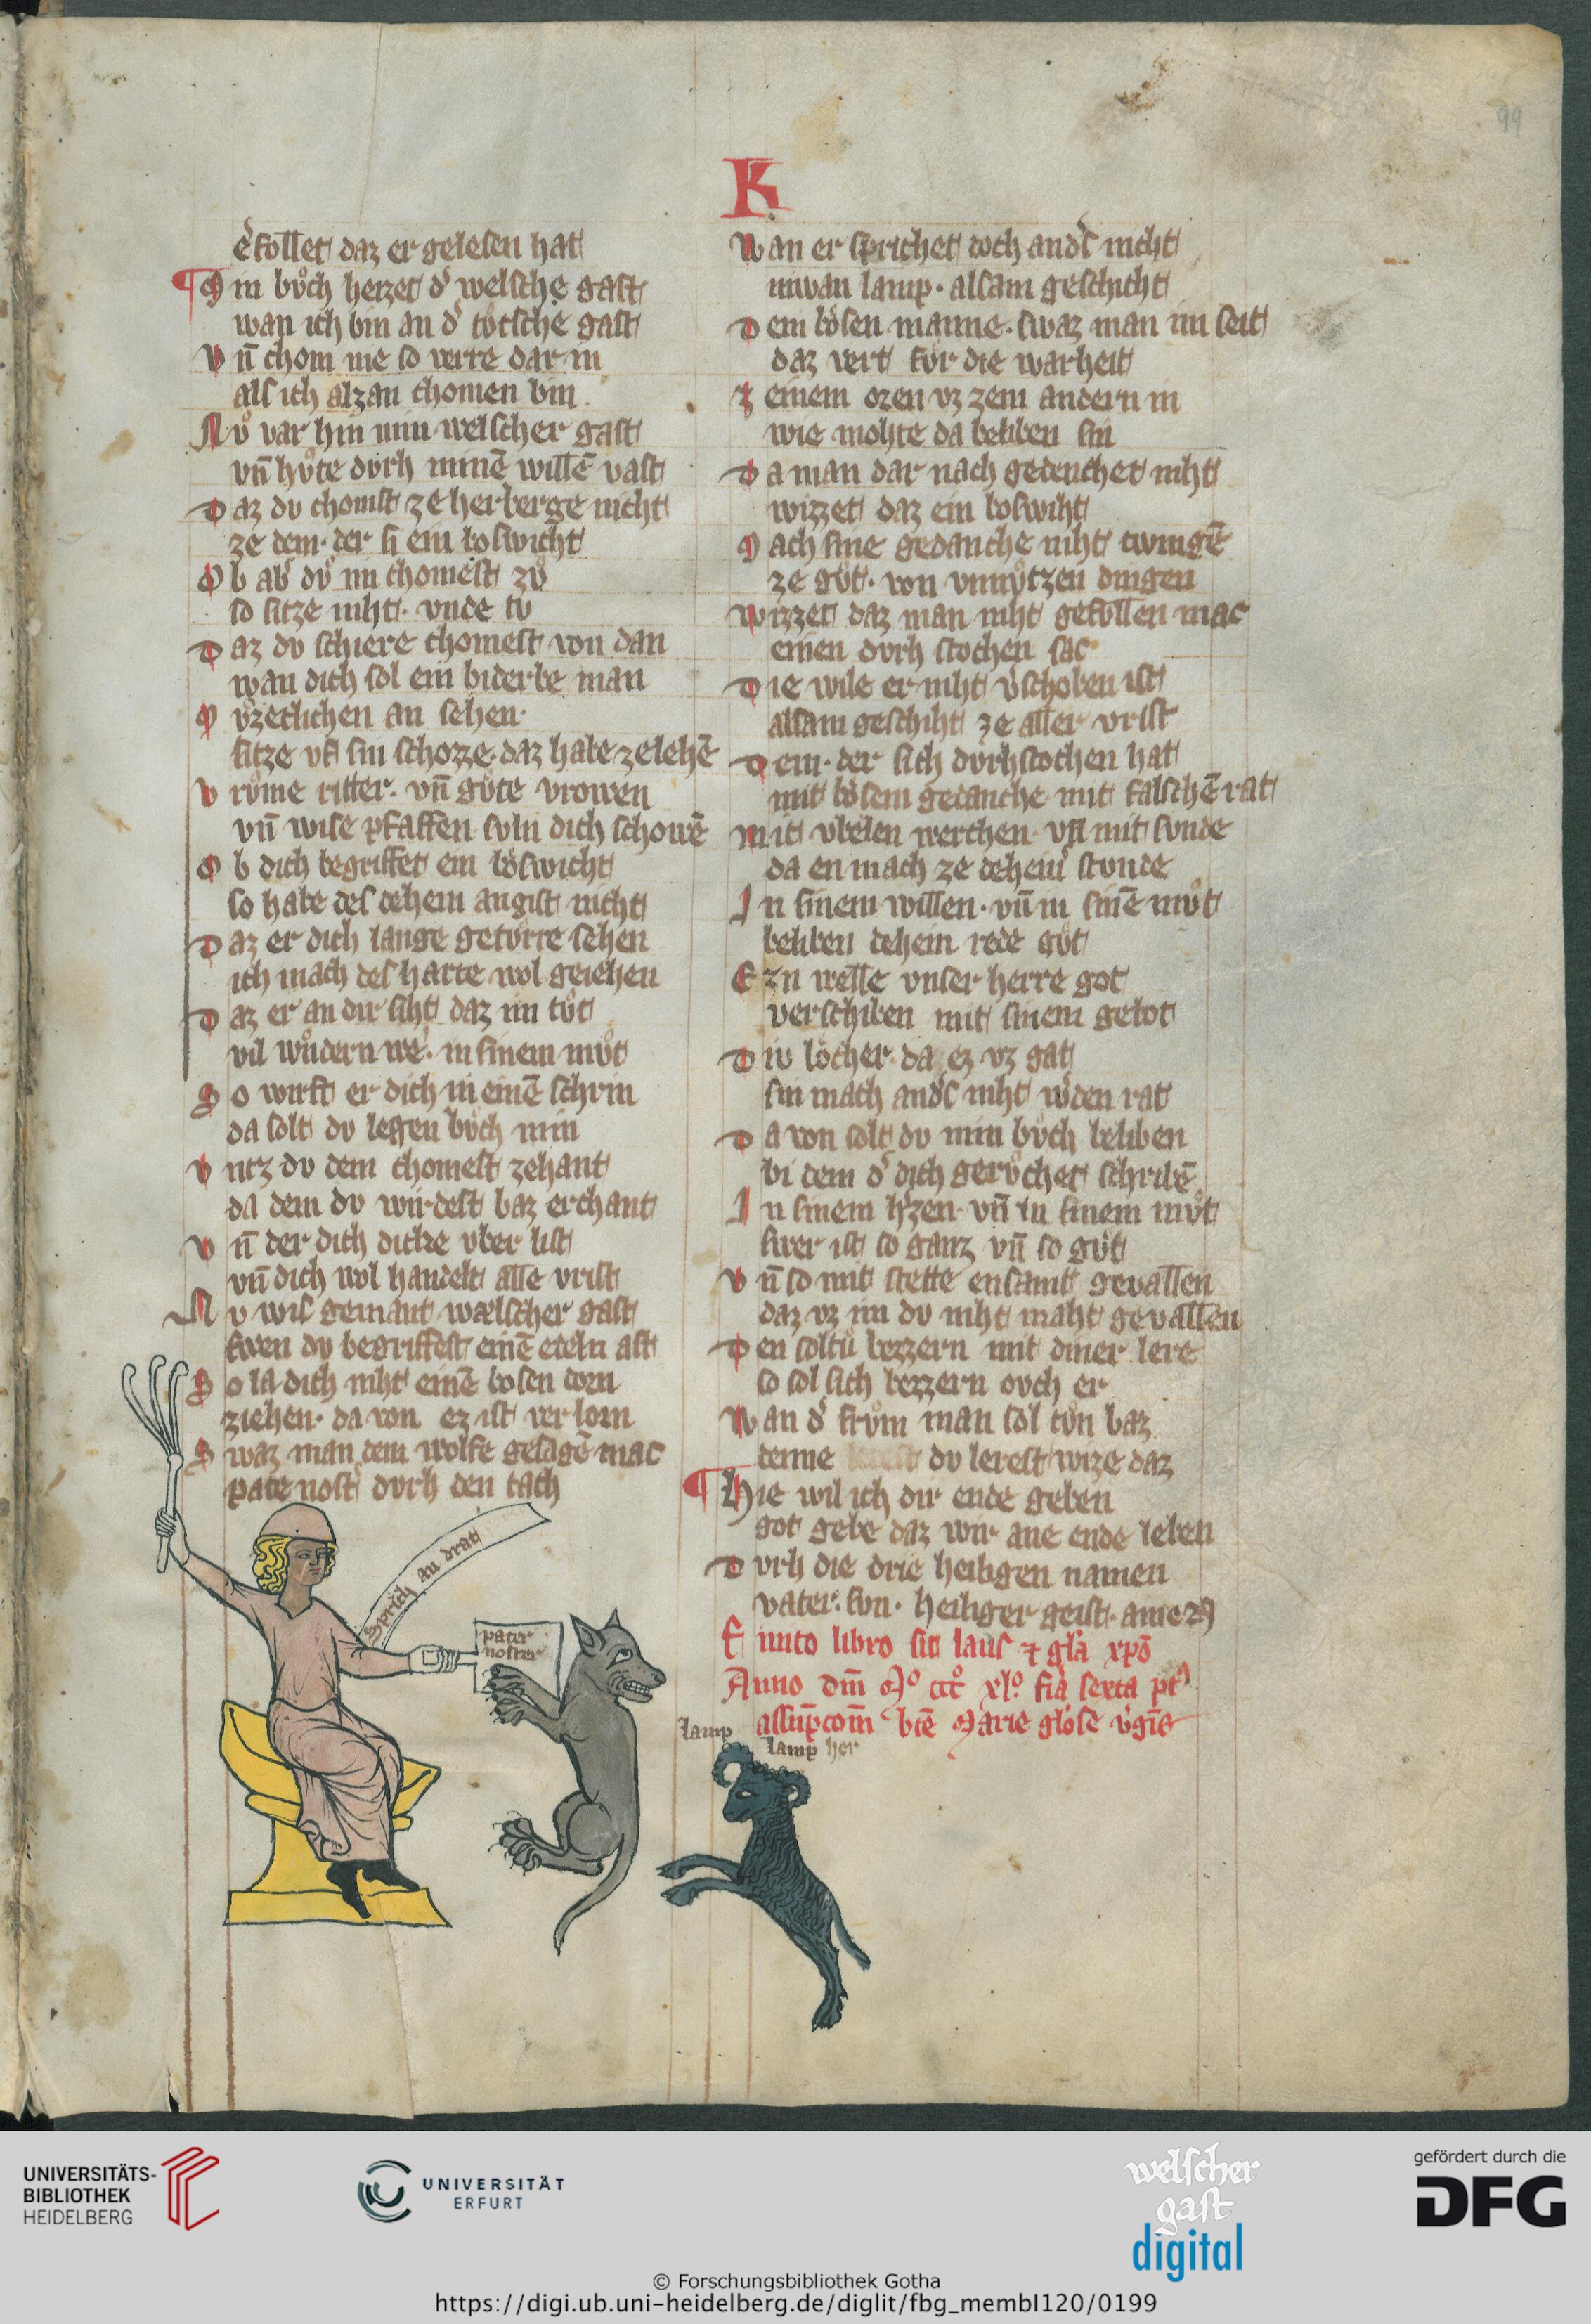 99
K
ervollet daz er gelesen hat
Min bůch heizet d͛ welsche gast
wan ich bin an d͛ tůtsche gast
Vn̄ chom nie so verre dar in
als ich alzan chomen bin.
Nv̊ var hin min welscher gast
vn̄ hv̊te dvrh minē willē vast
Daz dv chomst ze herberge nicht
ze dem· der si ein boswicht
Ob ab͛ dv̊ im chomest zv̊
so sitze niht· vnde tv
Daz dv schiere chomest von dan
wan dich sol ein biderbe man
sitze vf sin schozze· daz habe ze lehē
Vrome ritter· vn̄ gůte vrowen
vn̄ wise pfaffen svln dich schowē
Ob dich begriffet ein bȯswicht
so habe des dehein angist nicht
Daz er dich lange getůrre sehen
ich mach des harte wol geiehen
Daz er an dir siht daz im tůt
vil wůndern we· in sinem mv̊t
So wirft er dich in einē schrin
da solt dv legen bv̊ch min
Vntz dv dem chomest zehant
da dem dv wirdest baz erchant
Vn̄ der dich dicke vber list
vn̄ dich wol handelt alle vrist
Nv wis gemant wælscher gast
swen dv begriffest einē edeln ast
So la dich niht einē bosen dorn
ziehen· da von ez ist verlorn
Swaz man dem wolfe gesagē mac
pat͛ nost͛ dvrh den tach
Sprich an drat
pater
noster
Wan er sprichet doch and͛s nicht
niwan lamp· alsam geschicht
Dem bȯsen manne· swaz man im seit
daz vert fůr die warheit
Z einem oren vz zem andern in
wie mohte da beliben sin
Da man dar nach gedenchet niht
wizzet daz ein boswiht
Mach sine gedanche niht twingē
ze gůt· von vnnv̊tzen dingen
Wizzet daz man niht gefvllen mac
einen dvrh stochen sac
Die wile er niht v͛schoben ist
alsam geschiht ze aller vrist
Dem· der sich dvrhstochen hat
mit bȯsem gedanche mit falschē rat
Mit vbelen werchen· vn̄ mit svnde
da en mach ze deheiner stvnde
In sinem willen· vn̄ in sinē mv̊t
beliben dehein rede gůt
Ezn welle vnser herre got
verschiben mit sinem gebot
Div lȯcher· da ez vz gat
sin mach and͛s niht w͛den rat
Da von solt dv min bv̊ch beliben
bi dem d͛ dich gerůchet schribē
In sinem h͛zen· vn̄ in sinem mv̊t
swer ist so ganz vn̄ so gůt
Vn̄ so mit stette ensamt gevallen
daz vz im dv niht maht gevallen
Den soltu bezzern mit diner lere
so sol sich bezzern ovch er
Wan d͛ frům man sol tůn baz
denne dv lerest wize daz
Hie wil ich dir ende geben
got gebe daz wir ane ende leben
Dvrh die drie heiligen namen
vater· svn· heiliger geist· amen
Finito libro sit laus ⁊ gl͛a xp̄o
Anno dn̄i Mo ccco xlo· f͛ia sexta pꝰ
assūpcom̄ bt̄e Marie gl͛ose v͛gīs
lamp
lamp her
UNIVERSITÄTS-
BIBLIOTHEK
HEIDELBERG
UNIVERSITÄT
ERFURT
welscher
gast
digital
gefördert durch die
DFG
© Forschungsbibliothek Gotha
https://digi.ub.uni-heidelberg.de/diglit/fbg_membI120/0199